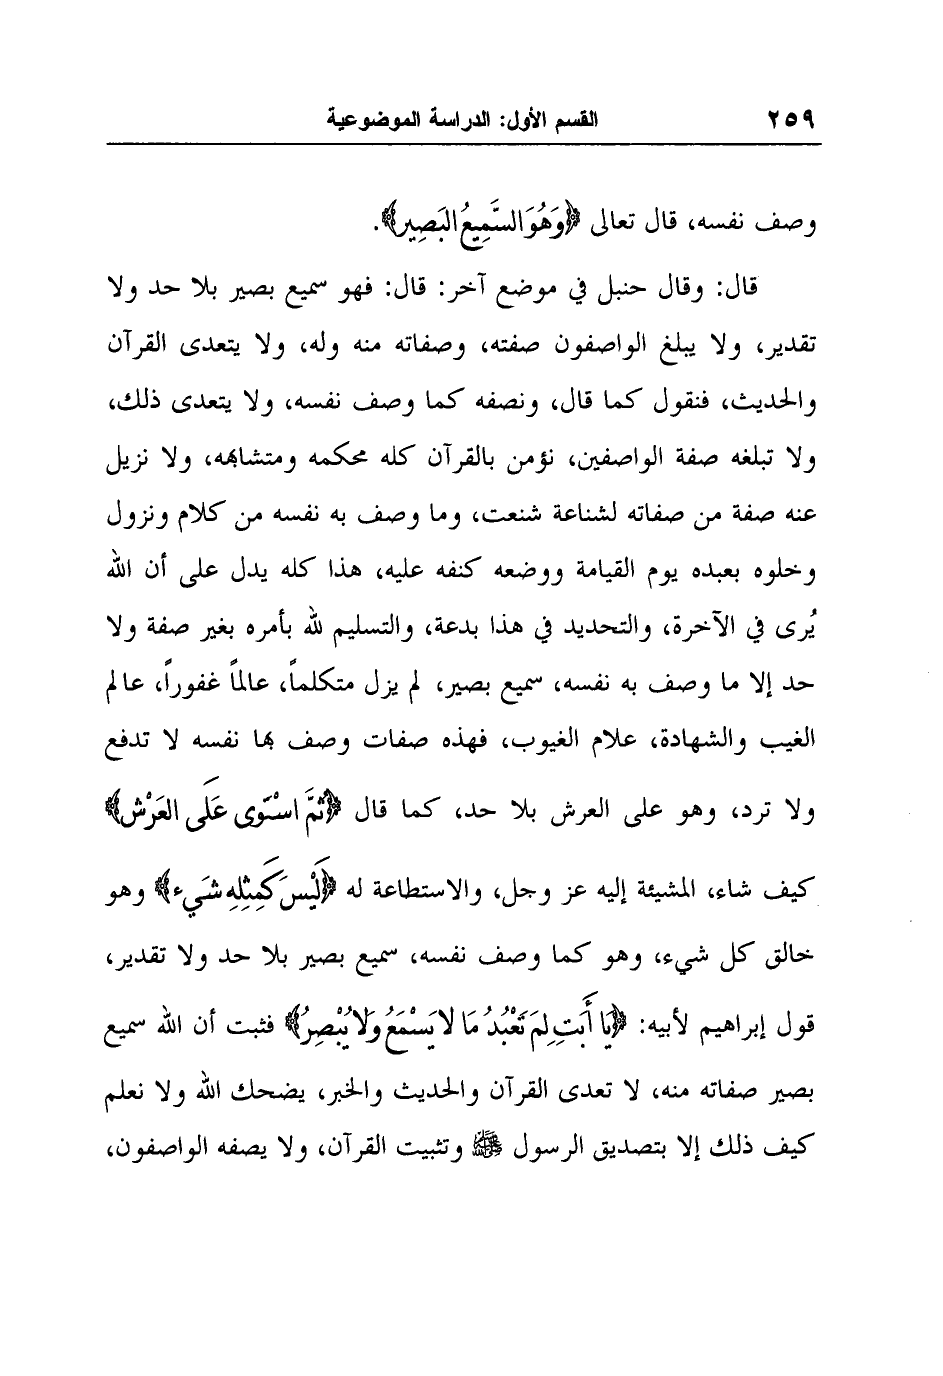 القسم الأول: الدراسة الموضوعية ٢٥٩
وصف نفسه، قال تعالى ﴿وَهُوَ السَّمِيعُ البَصِير﴾.
قال: وقال حنبل في موضع آخر: قال: فهو سميع بصير بلا حد ولا
تقدير، ولا يبلغ الواصفون صفته، وصفاته منه وله، ولا يتعدى القرآن
والحديث، فنقول كما قال، ونصفه كما وصف نفسه، ولا يتعدى ذلك،
ولا تبلغه صفة الواصفين، نؤمن بالقرآن كله محكمه ومتشابهه، ولا نزيل
عنه صفة من صفاته لشناعة شنعت، وما وصف به نفسه من كلام ونزول
وخلوه بعبده يوم القيامة ووضعه كنفه عليه، هذا كله يدل على أن الله
يُرى في الآخرة، والتحديد في هذا بدعة، والتسليم لله بأمره بغير صفة ولا
حد إلا ما وصف به نفسه، سميع بصير، لم يزل متكلماً، عالماً غفوراً، عالم
الغيب والشهادة، علام الغيوب، فهذه صفات وصف بها نفسه لا تدفع
ولا ترد، وهو على العرش بلا حد، كما قال ﴿ثُمَّ اسْتَوى عَلَى العَرْش﴾
كيف شاء، المشيئة إليه عز وجل، والاستطاعة له ﴿لَيْسَ كَمِثْلِهِ شَيء﴾ وهو
خالق كل شيء، وهو كما وصف نفسه، سميع بصير بلا حد ولا تقدير،
قول إبراهيم لأبيه: ﴿يَا أَبَتِ لِمَ تَعْبُدُ مَا لا يَسْمَعُ وَلا يُبْصِرُ﴾ فثبت أن الله سميع
بصير صفاته منه، لا تعدى القرآن والحديث والخبر، يضحك الله ولا نعلم
كيف ذلك إلا بتصديق الرسول ﷺ وتثبيت القرآن، ولا يصفه الواصفون،